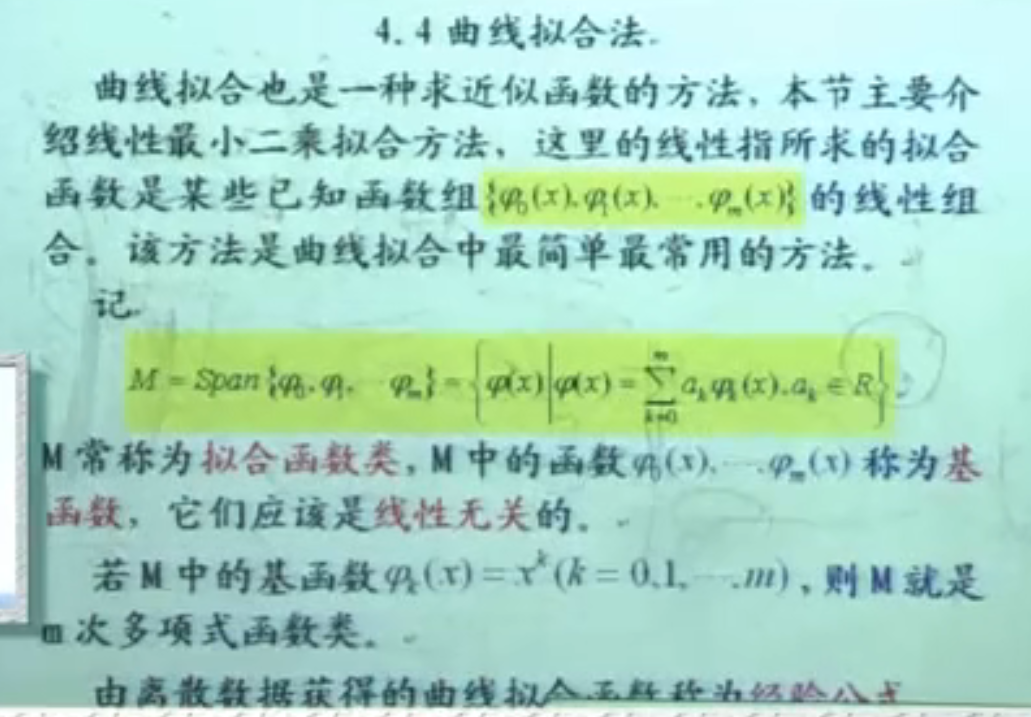 4.4 曲线拟合法.
曲线拟合也是一种求近似函数的方法,本节主要介
绍线性最小二乘拟合方法,这里的线性指所求的拟合
函数是某些已知函数组{φ₀(x),φ₁(x),…,φₘ(x)}的线性组
合。该方法是曲线拟合中最简单最常用的方法。
记
M = Span{φ₀,φ₁,…φₘ} = {φ(x)|φ(x) = ∑_{k=0}^{m} aₖφₖ(x),aₖ∈R}
M 常称为拟合函数类,M 中的函数φ₀(x),…,φₘ(x) 称为基
函数,它们应该是线性无关的。
若 M 中的基函数φₖ(x) = xᵏ(k = 0,1,…,m),则 M 就是
m 次多项式函数类。
由离散数据获得的曲线拟合函数称为经验公式